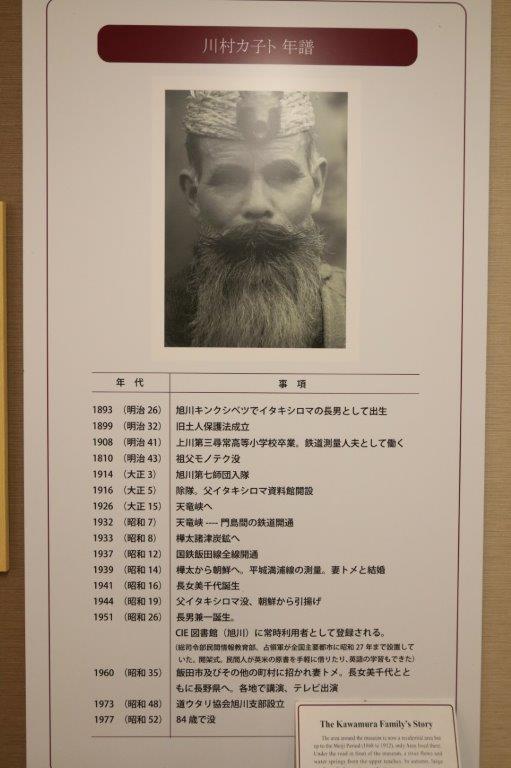 川村カ子ト 年譜
年　代　事　項
1893 （明治 26） 旭川キンクシベツでイタキシロマの長男として出生
1899 （明治 32） 旧土人保護法成立
1908 （明治 41） 上川第三尋常高等小学校卒業。鉄道測量人夫として働く
1810 （明治 43） 祖父モノテク没
1914 （大正 3） 旭川第七師団入隊
1916 （大正 5） 除隊。父イタキシロマ資料館開設
1926 （大正 15） 天竜峡へ
1932 （昭和 7） 天竜峡 ---- 門島間の鉄道開通
1933 （昭和 8） 樺太諸津炭鉱へ
1937 （昭和 12） 国鉄飯田線全線開通
1939 （昭和 14） 樺太から朝鮮へ。平城満浦線の測量。妻トメと結婚
1941 （昭和 16） 長女美千代誕生
1944 （昭和 19） 父イタキシロマ没、朝鮮から引揚げ
1951 （昭和 26） 長男兼一誕生。
CIE 図書館（旭川）に常時利用者として登録される。
（総司令部民間情報教育部、占領軍が全国主要都市に昭和 27 年まで設置して
いた。開架式。民間人が英米の原書を手軽に借りたり、英語の学習もできた）
1960 （昭和 35） 飯田市及びその他の町村に招かれ妻トメ。長女美千代とと
もに長野県へ。各地で講演、テレビ出演
1973 （昭和 48） 道ウタリ協会旭川支部設立
1977 （昭和 52） 84 歳で没
The Kawamura Family's Story
The area around the museum is now a residential area but
up to the Meiji Period (1868 to 1912), only Ainu lived there.
Under the road in front of the museum, a river flows and
water springs from the upper reaches. In autumn, large